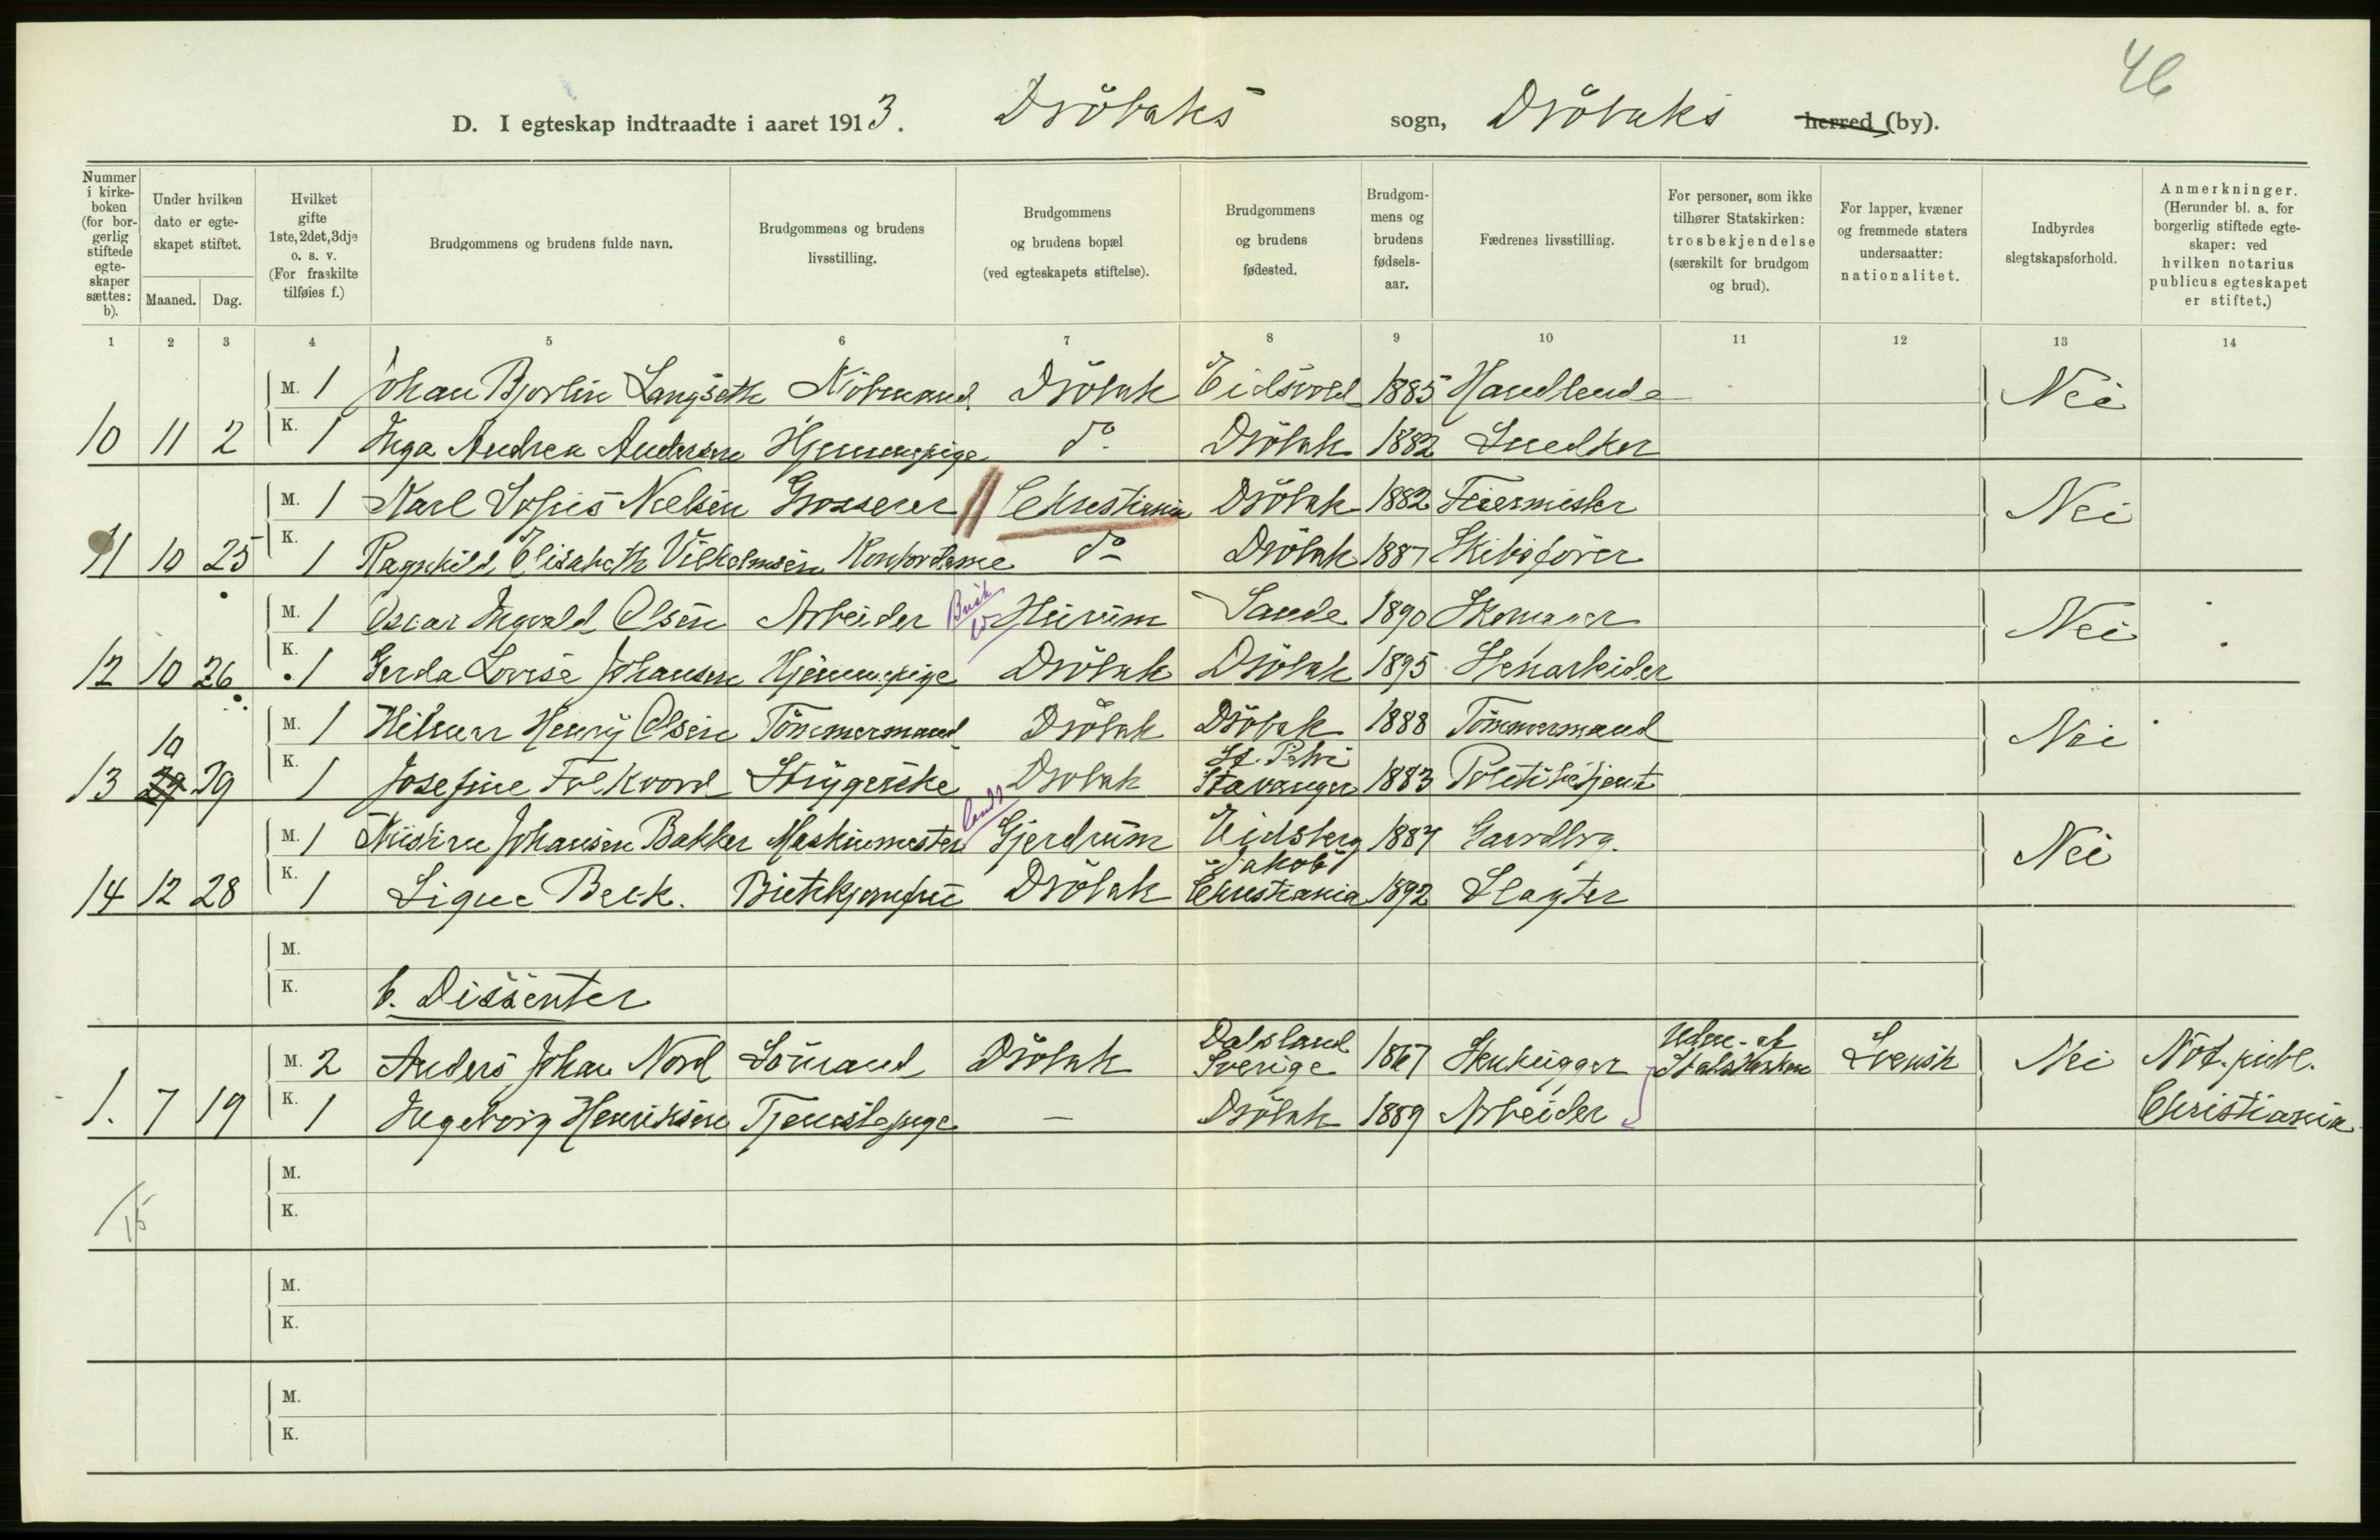 46
D. I egteskap indtraadte i aaret 1913. Dröbaks sogn, Dröbaks herred (by).
Nummer i kirke- boken (for bor- gerlig stiftede egte- skaper sættes: b).
Under hvilken dato er egte- skapet stiftet.
Maaned. Dag.
Hvilket gifte 1ste, 2det, 3dje o. s. v. (For fraskilte tilføies f.)
Brudgommens og brudens fulde navn.
Brudgommens og brudens livsstilling.
Brudgommens og brudens bopæl (ved egteskapets stiftelse).
Brudgommens og brudens fødested.
Brudgom- mens og brudens fødsels- aar.
Fædrenes livsstilling.
For personer, som ikke tilhører Statskirken: trosbekjendelse (særskilt for brudgom og brud).
For lapper, kvæner og fremmede staters undersaatter: nationalitet.
Indbyrdes slegtskapsforhold.
Anmerkninger. (Herunder bl. a. for borgerlig stiftede egte- skaper: ved hvilken notarius publicus egteskapet er stiftet.)
1 2 3 4 5 6 7 8 9 10 11 12 13 14
M. 1 Johan Langseth Kjöbmand Dröbak Eidsvold 1885 Handlende Nei
10 11 2 K. 1 Inga Andrea Andersen Hjemmepige do Dröbak 1882 Snedker
M. 1 Karl Sofus Nielsen Grosserer Christiania Dröbak 1882 Feiermester Nei
11 10 25 K. 1 Ragnhild Elisabeth Vilhelmsen Kontordame do Dröbak 1887 Skibsförer
M. 1 Oscar Ingvald Olsen Arbeider Busk Hurum Sande 1890 Skomager Nei
12 10 26 K. 1 Gerda Lovise Johansen Hjemmepige Dröbak Dröbak 1895 Stenarbeider
M. 1 Hilmar Henry Olsen Tömmermand Dröbak Dröbak 1888 Tömmermand Nei
10
13 29 K. 1 Josefine Folkvord Strygerske Dröbak St. Petri Stavanger 1883 Politibetjent
M. 1 Johansen Bakker Maskinmester Gjerdrum Eidsberg 1887 Gaardbrg. Nei
14 12 28 K. 1 Signe Beck. Dröbak Jakob Christiania 1892 Slagter
M.
K. b. Dissenter
M. 2 Anders Johan Nord Sömand Dröbak Dalsland Sverige 1867 Stenhugger Uden- af Statskirken Svensk Nei Not. publ.
1. 7 19 K. 1 Ingeborg Henriksen Tjenestepige — Dröbak 1889 Arbeider Christiania
M.
15
K.
M.
K.
M.
K.